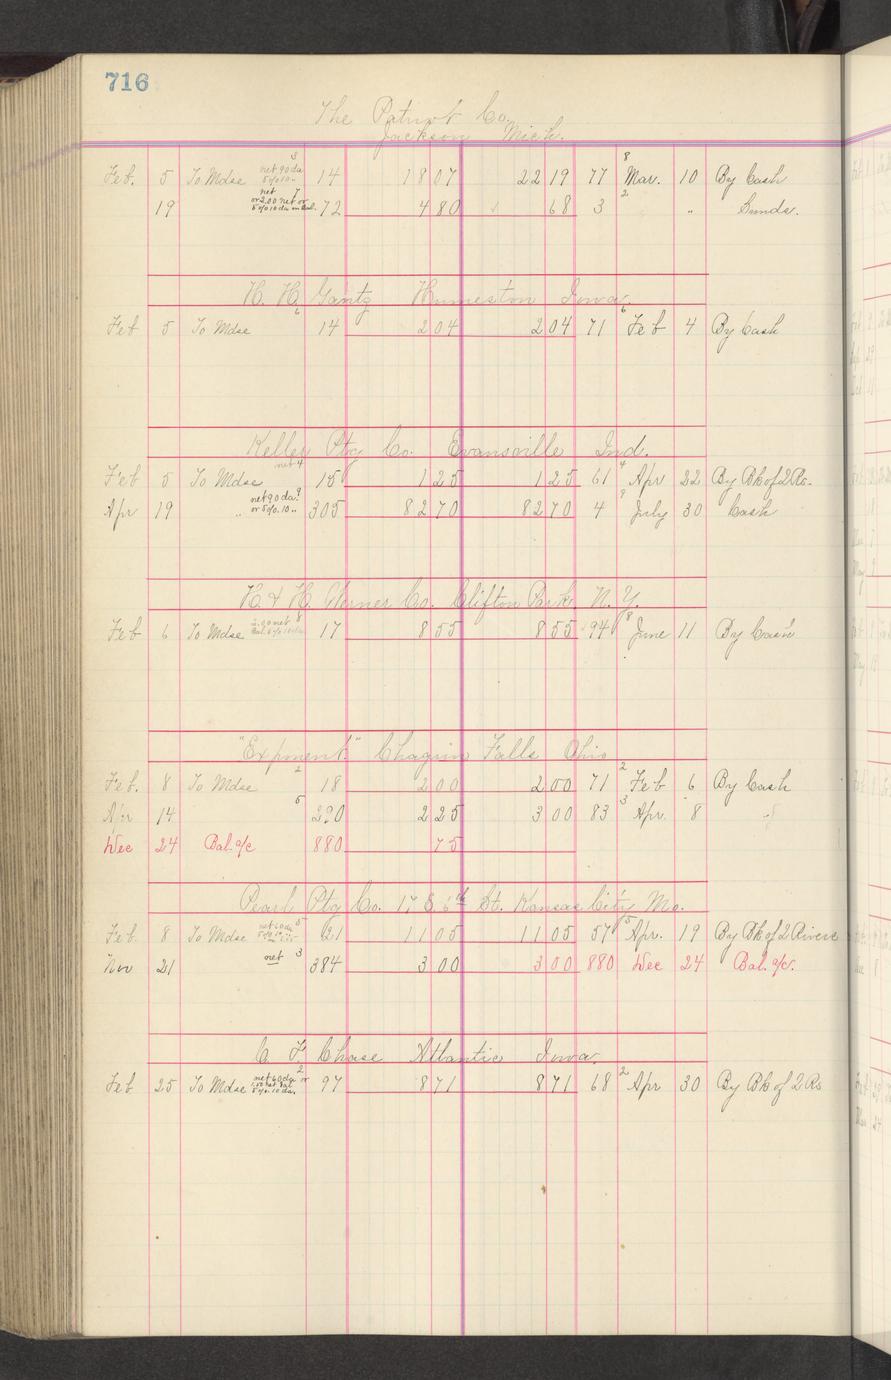 716
The Patriot Co.
Jackson Mich.
3 8
Feb. 5 To Mdse net 90 da 5% 10 " 14 18 07 22 19 77 Mar. 10 By Cash
net 7 2
19 or 2.00 net or 5% 10 da on Bal. 72 4 80 68 3 " Sunds.
H. H. Gantz Humeston Iowa.
6 6
Feb 5 To Mdse 14 2 04 2 04 71 Feb 4 By Cash
Keller Ptg Co. Evansville Ind.
net 4 4
Feb 5 To Mdse 15 1 25 1 25 61 Apr 22 By Bk of 2 Rs.
net 90 da. 9 9
Apr 19 " or 5% 10 " 305 82 70 82 70 4 July 30 Cash
H. & H. Werner Co. Clifton Park, N. Y.
net 8 8
Feb 6 To Mdse Bal. 5% 10 da. 17 8 55 8 55 94 June 11 By Cash
"Exponent." Chagrin Falls Ohio
2 2
Feb. 8 To Mdse 18 2 00 2 00 71 Feb 6 By Cash
5 3
Apr 14 290 2 25 3 00 83 Apr. 8 "
Dec 24 Bal. a/c 880 75
Pearl Ptg Co. 17 E. 6th St. Kansas City Mo.
net 60 da 5 5
Feb. 8 To Mdse 21 11 05 11 05 57 Apr. 19 By Bk of 2 Rivers
Nov 21 net 3 384 3 00 3 00 880 Dec 24 Bal. a/c.
C. F. Chase Atlantic Iowa.
2 2
Feb 25 To Mdse net 60 da or 5% 10 da. 97 8 71 8 71 68 Apr 30 By Bk of 2 Rs